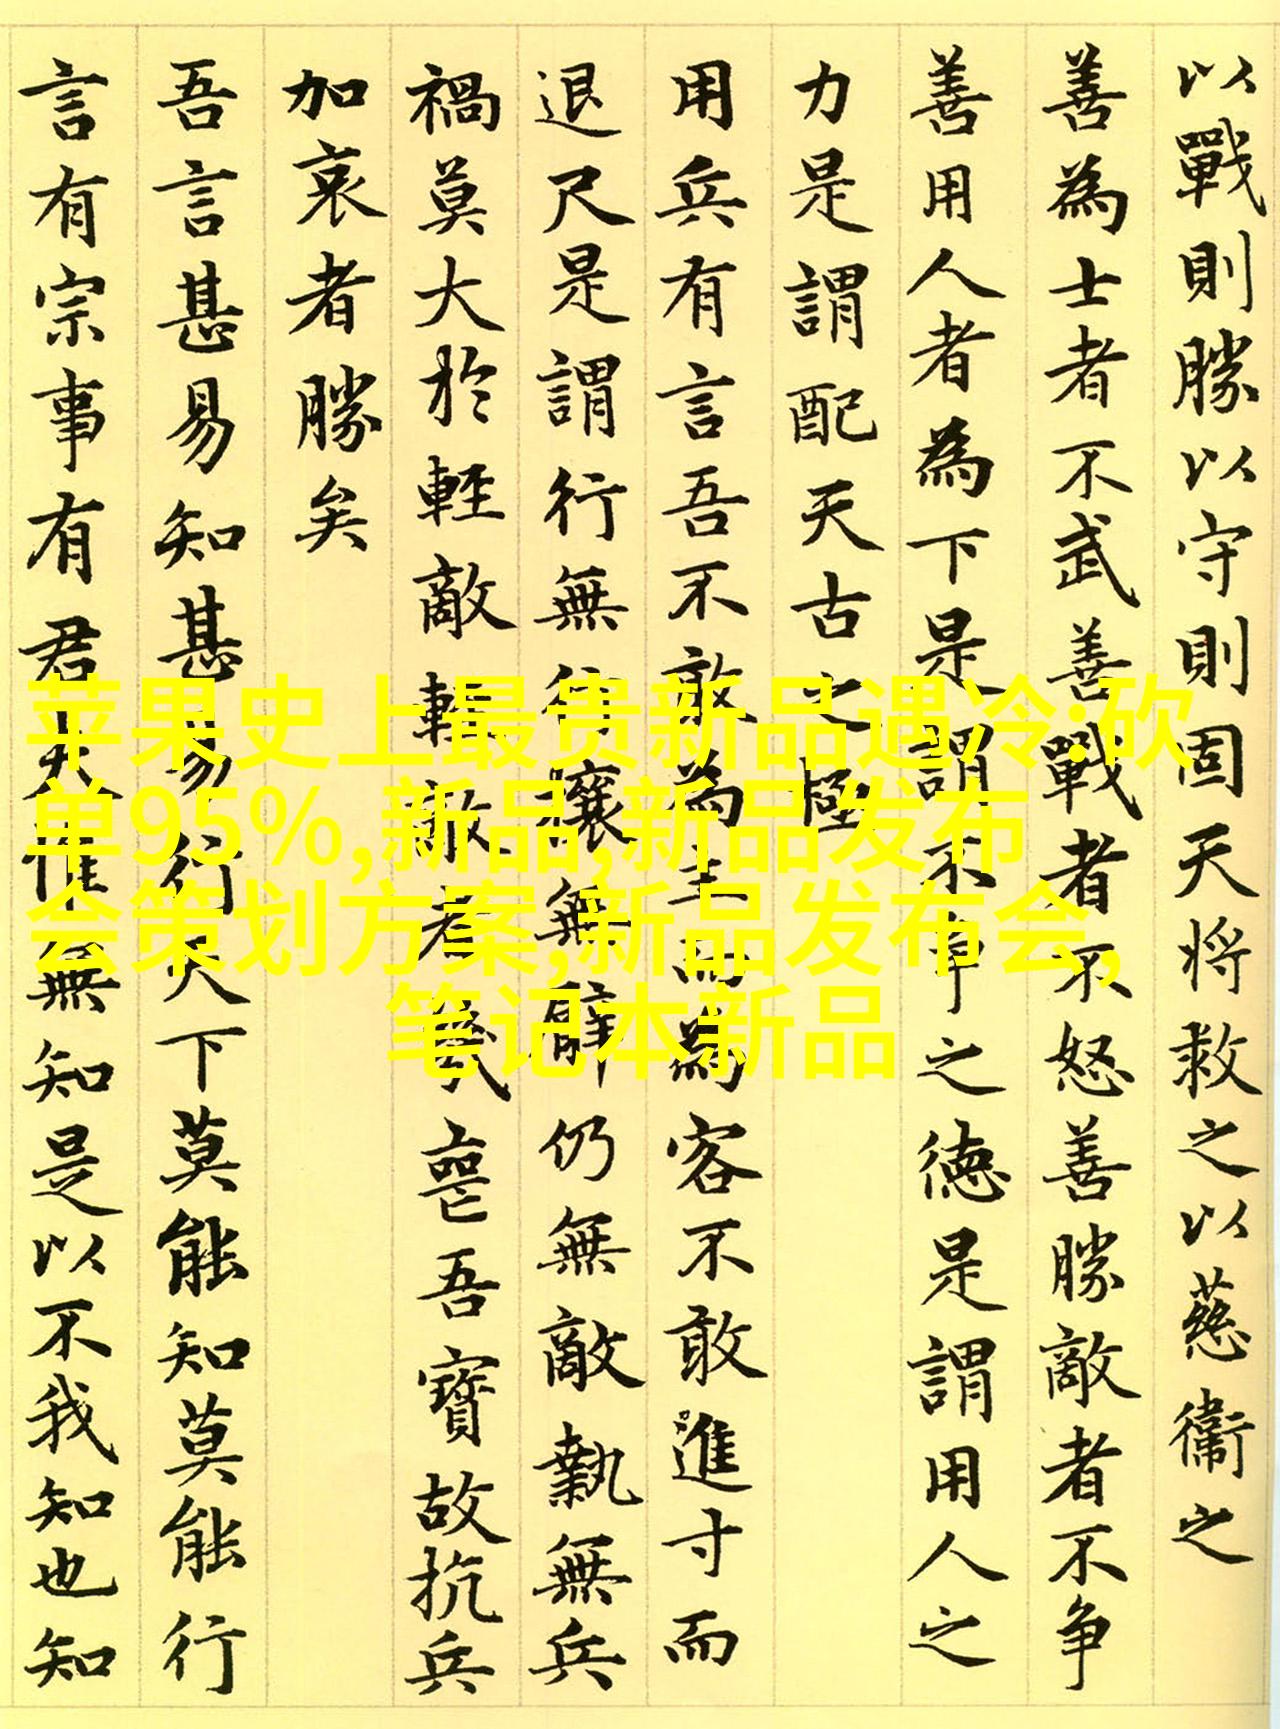 以戰則勝以守則固天将救之以慈衞之
善為士者不武善戰者不怒善勝敵者不争
善用人者為下是謂不争之德是謂用人之
力是謂配天古之極
用兵有言吾不敢為主而為客不敢進寸而
退尺是謂行無行攘無臂仍無敵執無兵
禍莫大於輕敵輕敵者幾喪吾寶故抗兵
加哀者勝矣
吾言甚易知甚易行天下莫能知莫能行
言有宗事有君夫惟無知是以不我知也知
苹果史上最贵新品遇冷:砍
单95%,新品,新品发布
会策划方案,新品发布会,
笔记本新品